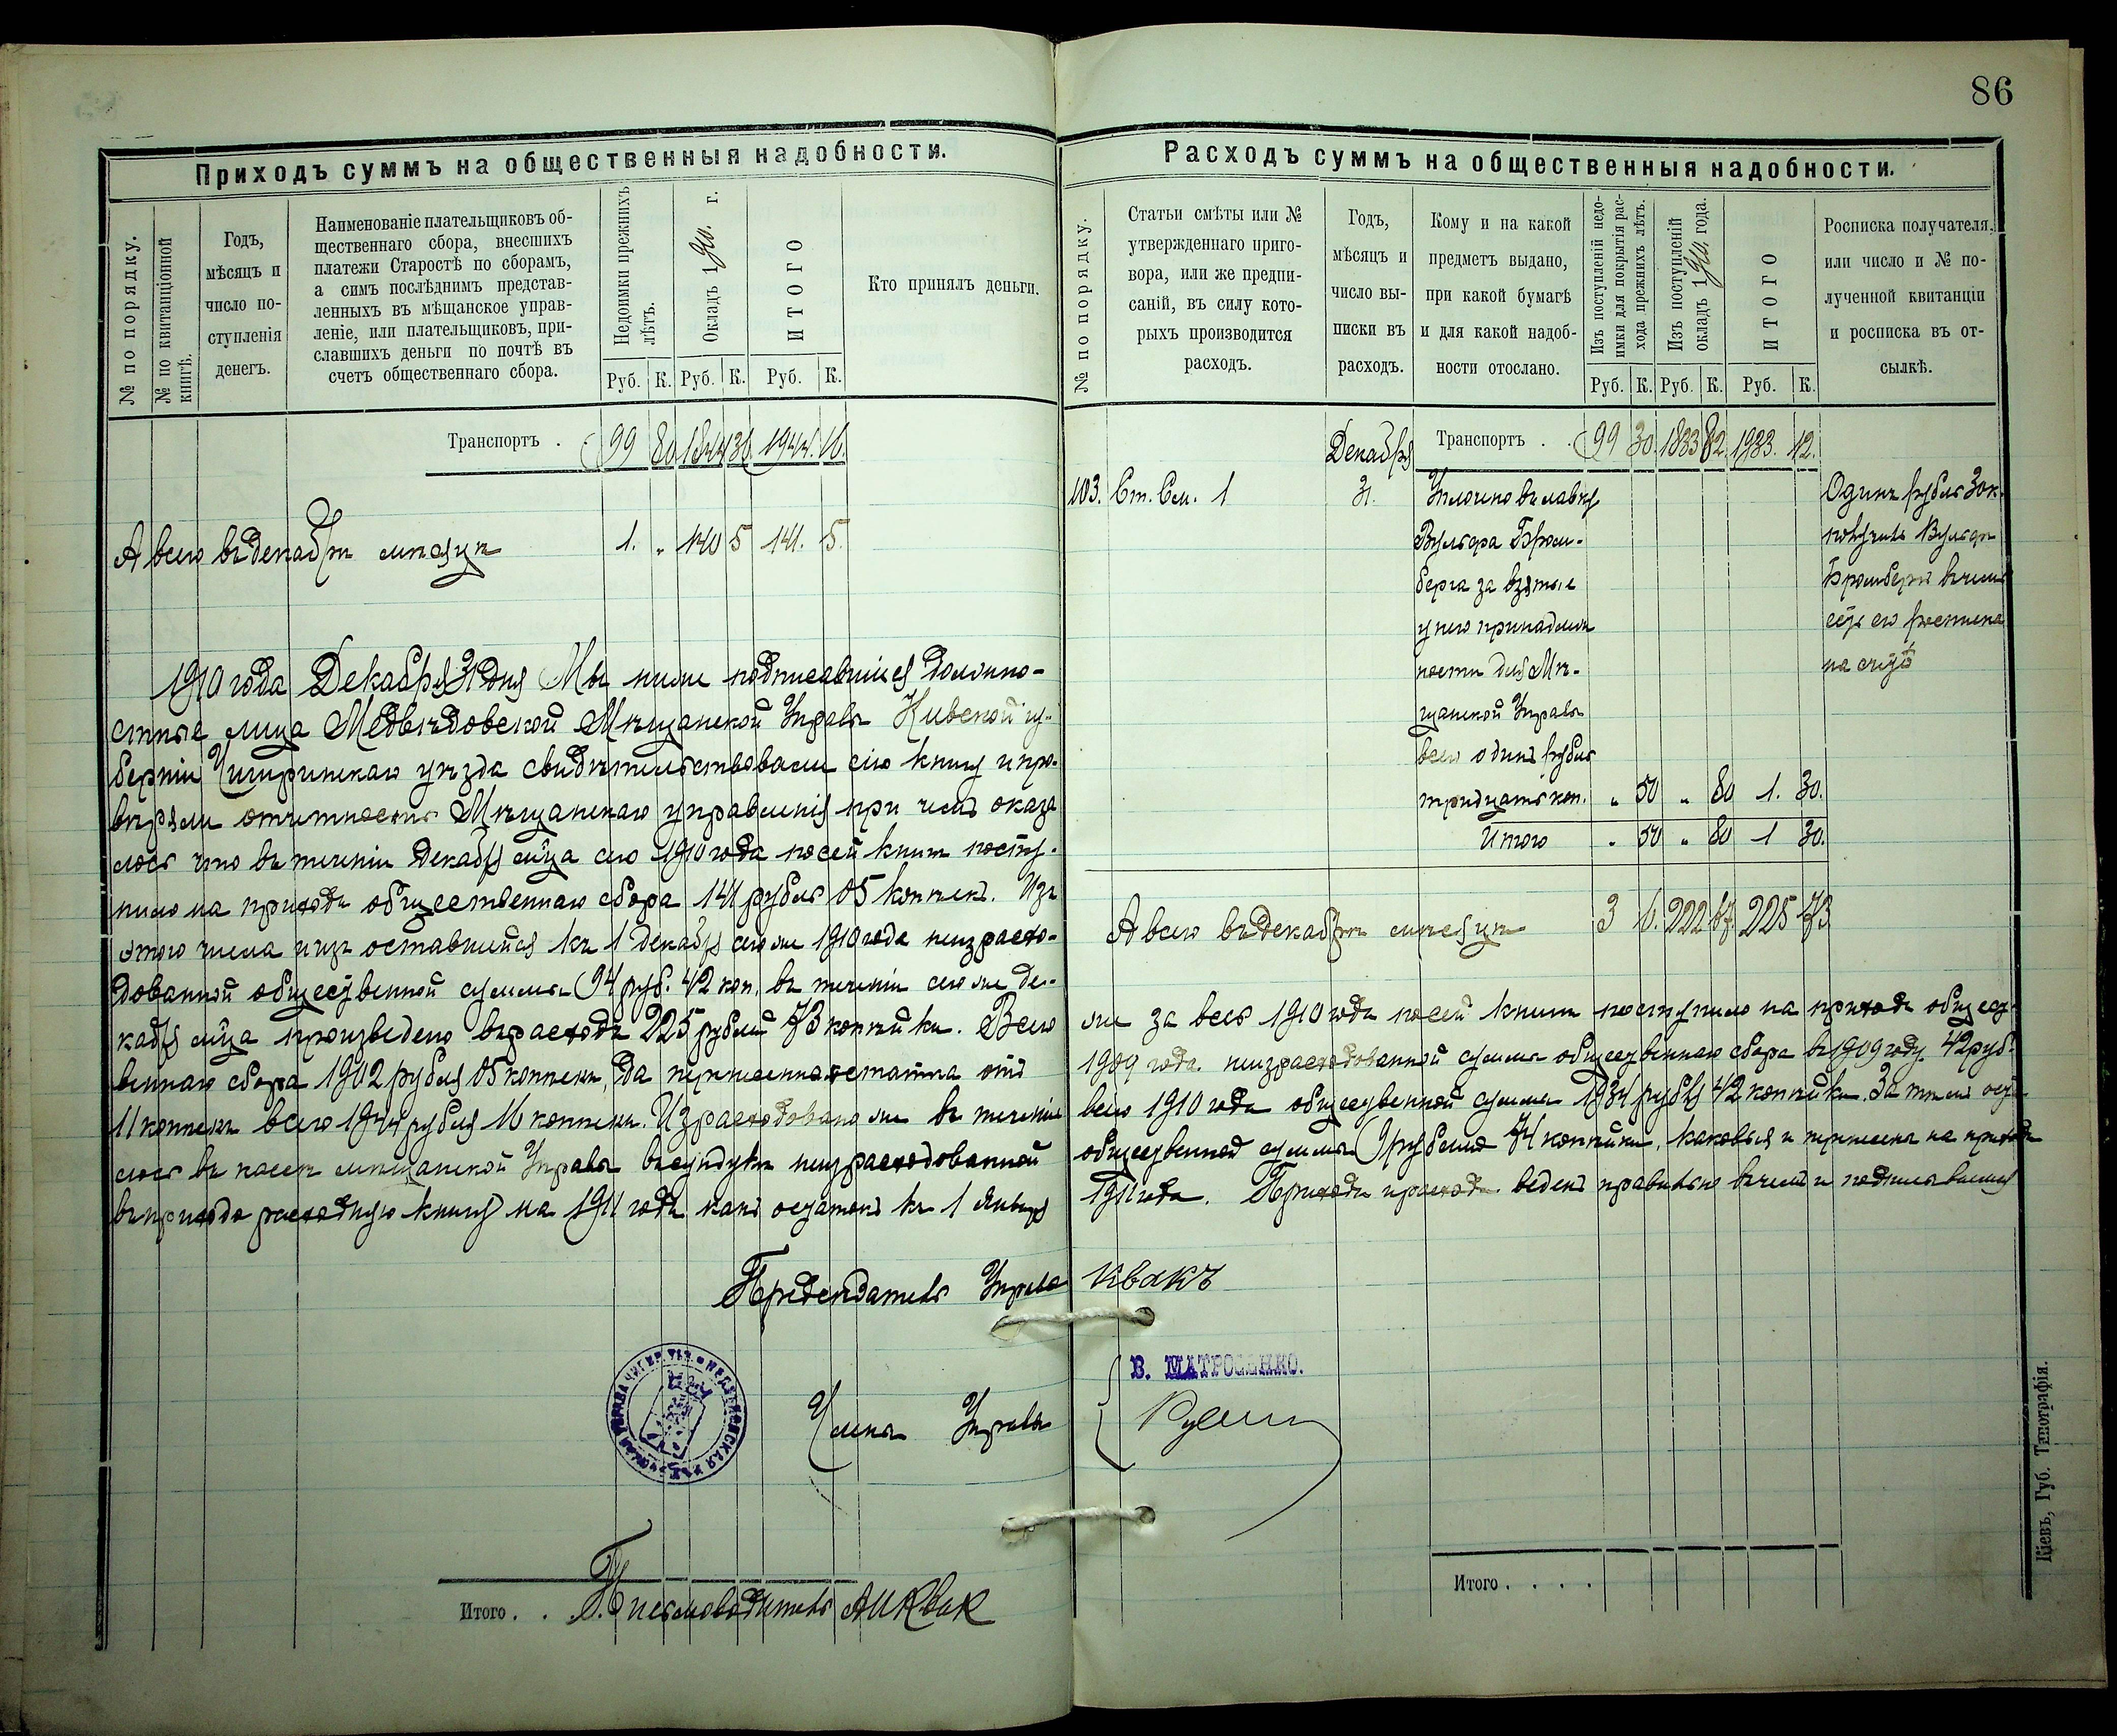 86
Приходъ суммъ на общественныя надобности.
№ по порядку.
№ по квитанціонной
книгѣ.
Годъ,
мѣсяцъ и
число по-
ступленія
денегъ.
Наименованіе плательщиковъ об-
щественнаго сбора, внесшихъ
платежи Старостѣ по сборамъ,
а симъ послѣднимъ представ-
ленныхъ въ мѣщанское управ-
леніе, или плательщиковъ, при-
славшихъ деньги по почтѣ въ
счетъ общественнаго сбора.
Недоимки прежнихъ
лѣтъ.
Окладъ 1910. г.
ИТОГО
Кто принялъ деньги.
Руб. К. Руб. К. Руб. К.
Транспортъ . 99 80 1844 36. 1944. 16.
А всего въ декабрѣ мѣсяцѣ 1. „ 140 5 141. 5.
1910 года Декабря 31 дня Мы ниже подписавшіеся должно-
стные лица Медвѣдовской Мѣщанской Управы Кіевской гу-
берніи Чигиринскаго уѣзда свидѣтельствовали сію книгу и про-
вѣряли отчетность Мѣщанскаго управленія при чемъ оказа
лось что въ теченіи Декабря м҃ца сего 1910 года по сей книгѣ посту-
пило на приходъ общественнаго сбора 141 рубль 05 копѣекъ. Изъ
этого числа и изъ оставшейся къ 1 декабря сего же 1910 года неизрасхо-
дованной общественной суммы 94 руб. 42 коп. въ теченіи сего же де-
кабря м҃ца произведено въ расходъ 225 рублей 73 копѣйки. Всего
веннаго сбора 1902 рубля 05 копѣекъ, да перечислена остатка отъ
11 копѣекъ всего 1944 рубля 16 копѣекъ. Израсходовано же въ теченіи
лось въ кассѣ мѣщанской Управы въ сундукѣ неизрасходованной
въ приходо расходную книгу на 1911 годъ какъ остатокъ къ 1 Января
Предсѣдатель Управы
Члены Управы
Письмоводитель А И Квак
Итого . .
Расходъ суммъ на общественныя надобности.
№ по порядку.
Статьи смѣты или №
утвержденнаго приго-
вора, или же предпи-
саній, въ силу кото-
рыхъ производится
расходъ.
Годъ,
мѣсяцъ и
число вы-
писки въ
расходъ.
Кому и на какой
предметъ выдано,
при какой бумагѣ
и для какой надоб-
ности отослано.
Изъ поступленій недо-
имки для покрытія рас-
хода прежнихъ лѣтъ.
Изъ поступленій
окладъ 1910. года.
ИТОГО
Росписка получателя,
или число и № по-
лученной квитанціи
и росписка въ от-
сылкѣ.
Руб. К. Руб. К. Руб. К.
Декабря Транспортъ . . 99 30. 1833 82. 1933. 12.
103. Ст. См. 1 31. Уплочено въ лавку
Вульфа Бром-
берга за взятые
у него принадлеж
ности для Мѣ-
щанской Управы
всего одинъ рубль
тридцать коп. „ 50 „ 80 1. 30.
Одинъ рубль 30 к.
получилъ Вульфъ
Бромбергъ въ чемъ
есть его росписка
на счетѣ
Итого „ 50 „ 80 1 30.
А всего въ декабрѣ мѣсяцѣ 3 6. 222 67. 225 73
же за весь 1910 годъ по сей книгѣ поступило на приходъ общест-
1909 года неизрасходованной суммы общественнаго сбора въ 1909 году 42 руб.
всего 1910 года общественной суммы 1934 рубля 42 копѣйки. За тѣмъ оста-
общественной суммы 9 рублей 74 копѣйки, каковыя и перечислены на приходъ
1911 года. Приходъ и расходъ веденъ правильно въ чемъ и подписываемся
Квакъ
В. МАТРОСЕНКО.
Итого . . . .
Кіевъ, Губ. Типографія.